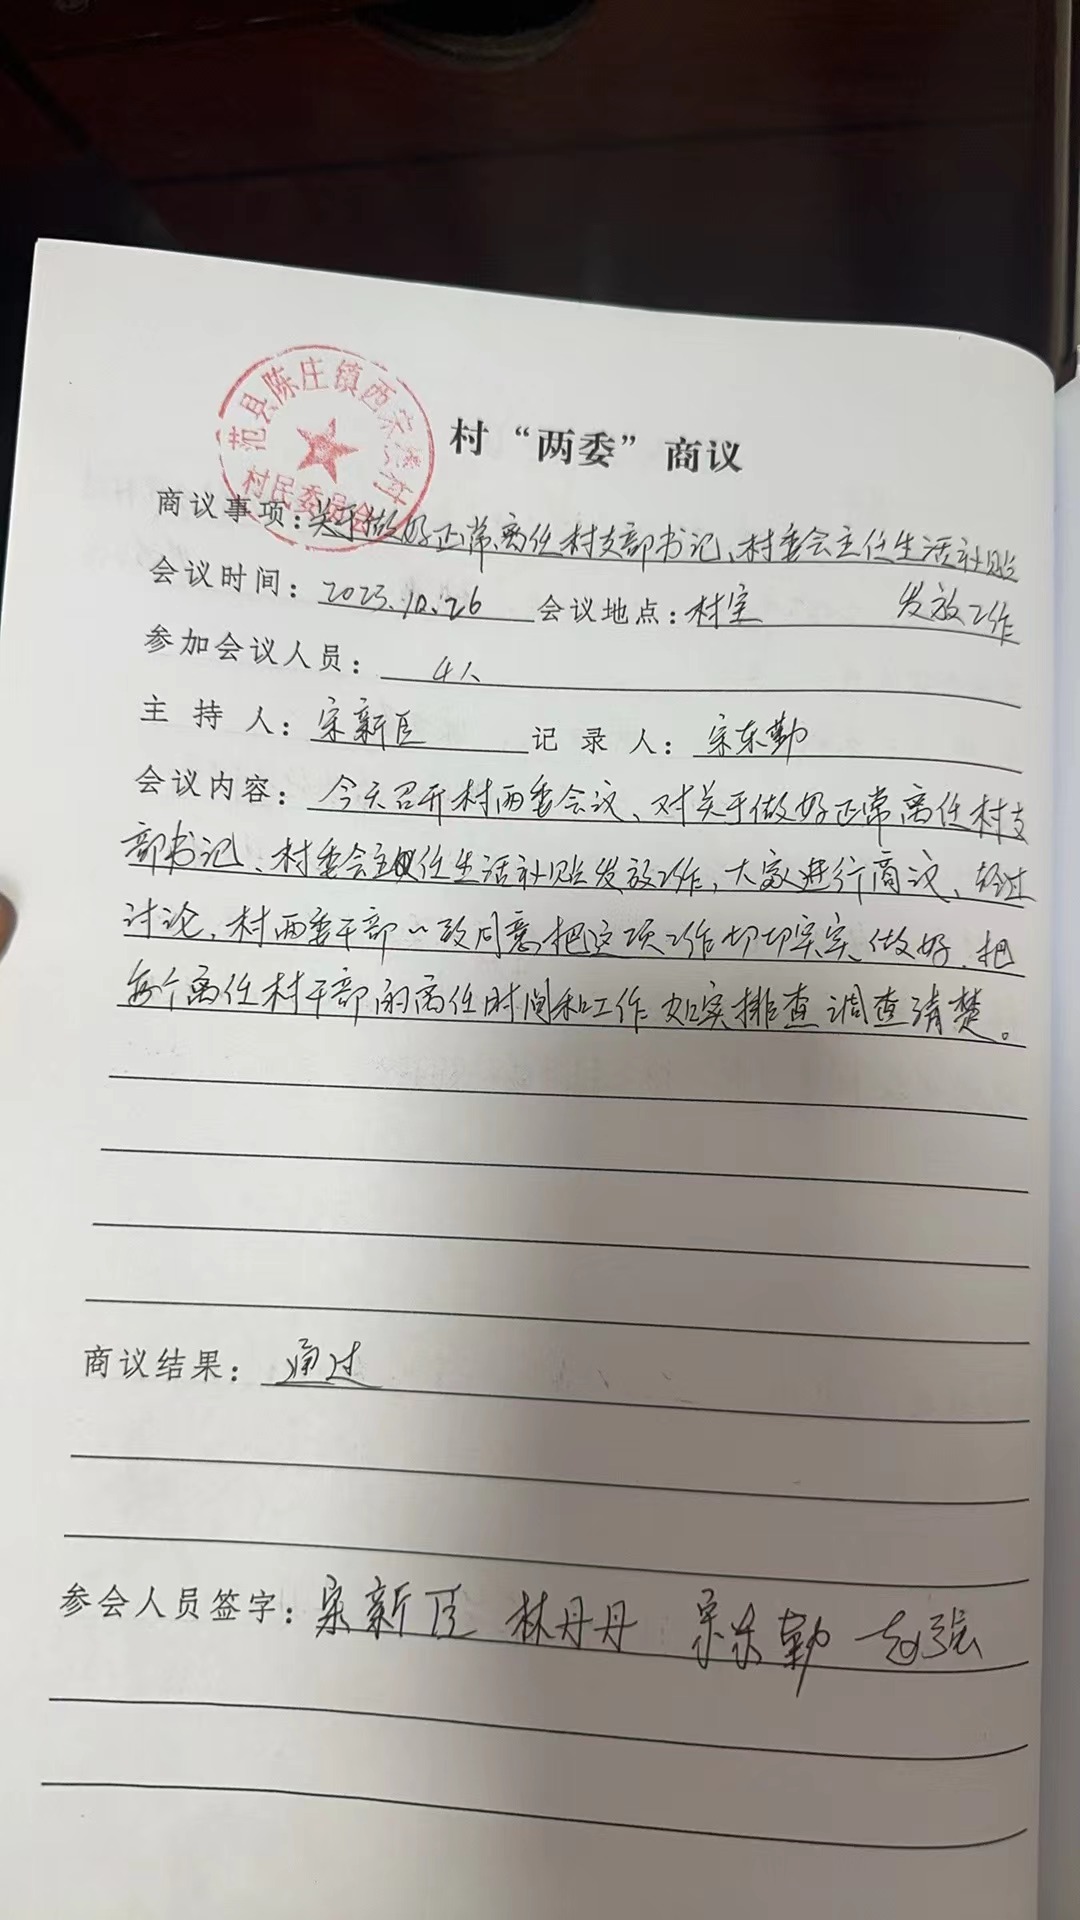 范县陈庄镇西宋楼村
村民委员会
村“两委”商议
商议事项：关于做好正常离任村支部书记、村委会主任生活补贴
发放工作
会议时间：2023.10.26 会议地点：村室
参加会议人员：4人
主持人：宋新臣 记录人：宋东勤
会议内容：今天召开村两委会议、对关于做好正常离任村支
部书记、村委会主任生活补贴发放工作，大家进行商议、经过
讨论，村两委干部一致同意把这项工作切切实实做好、把
每个离任村干部的离任时间和工作如实排查调查清楚。
商议结果：通过
参会人员签字：宋新臣 林丹丹 宋东勤